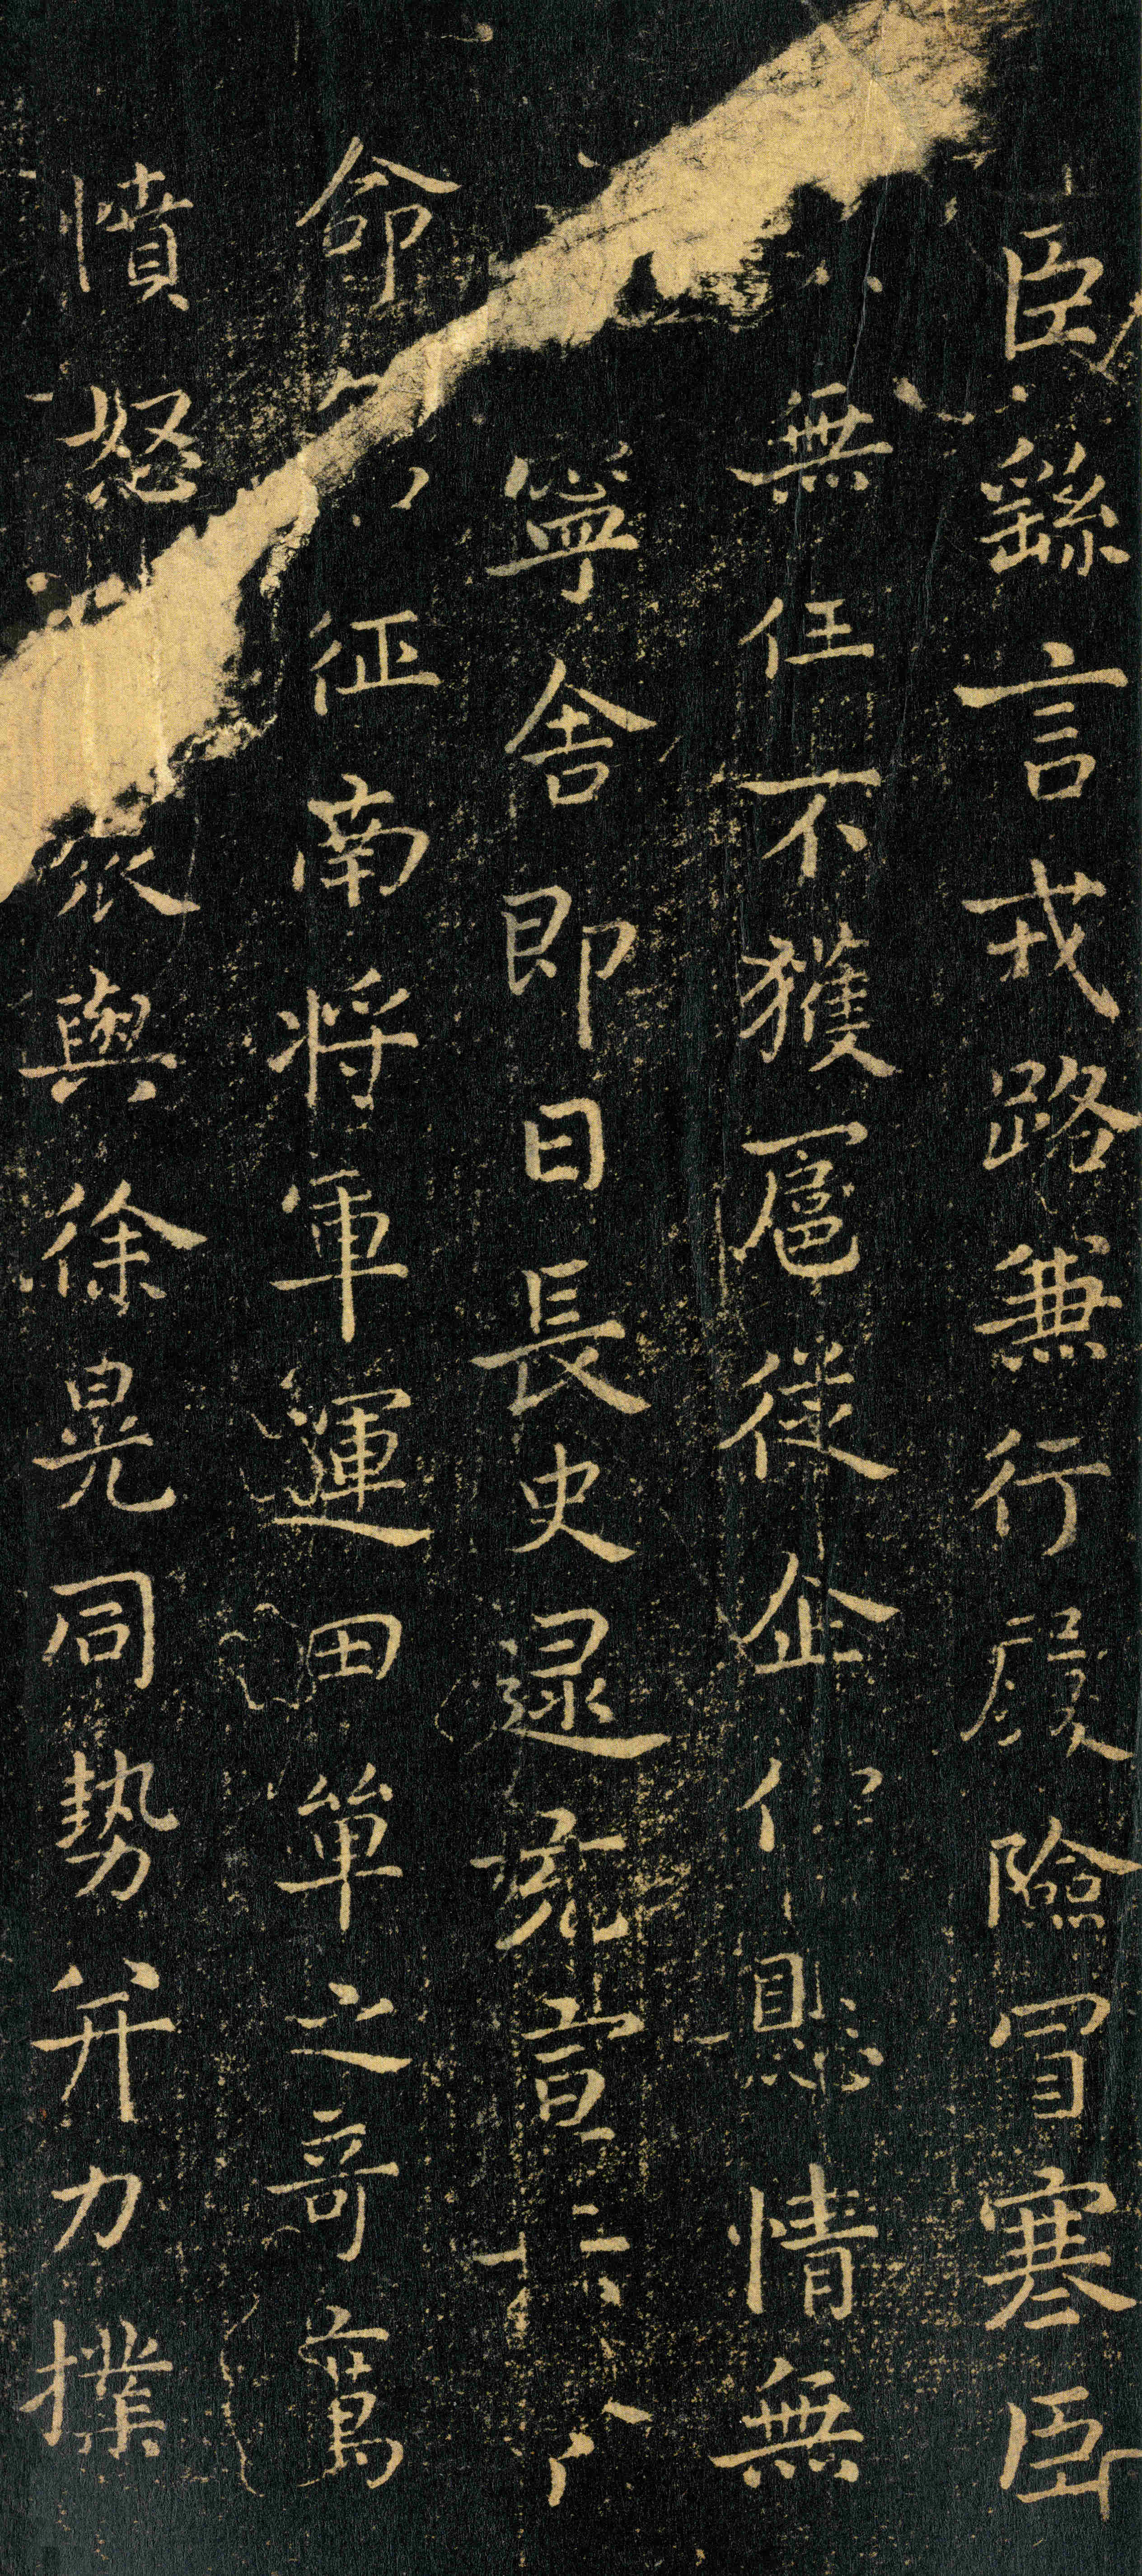 臣繇言戎路兼行履險冒寒臣
無任不獲扈從企佇懸情無
寧舍即日長史逯充宣
命征南將軍運田單之奇萬
憤怒眾與徐晃同勢并力撲